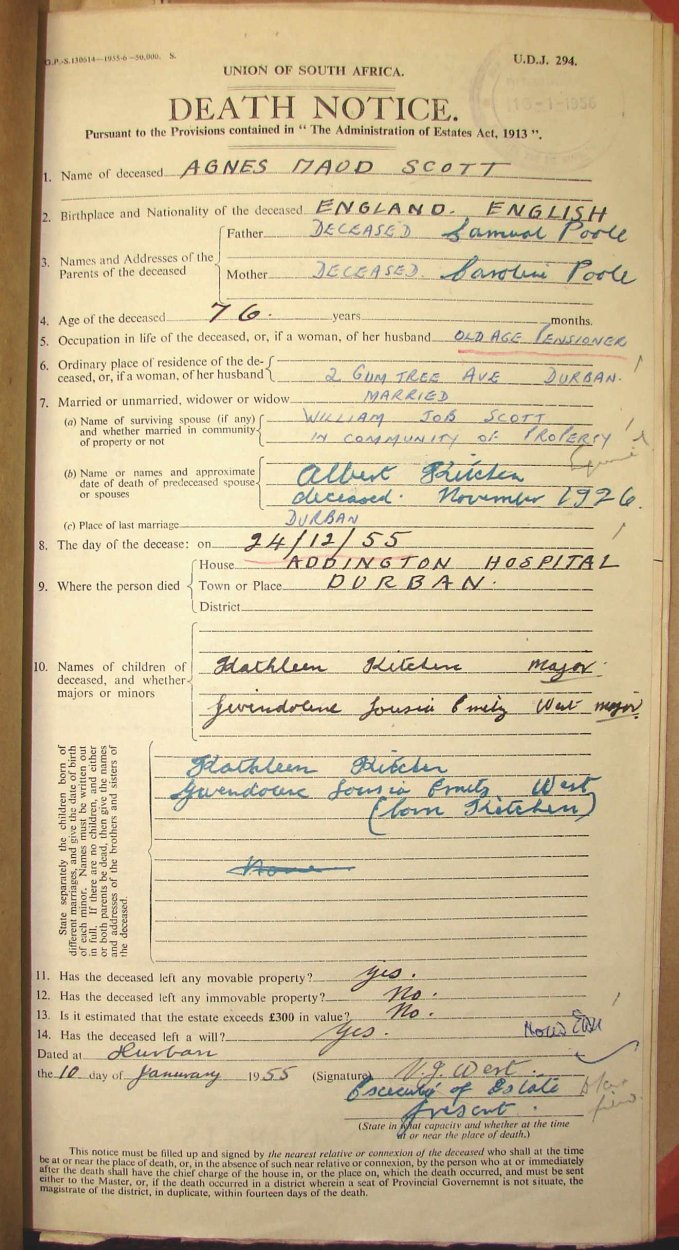 G.P.-S.130614—1955-6—50,000. S.
U.D.J. 294.
UNION OF SOUTH AFRICA.
DEATH NOTICE.
Pursuant to the Provisions contained in “ The Administration of Estates Act, 1913 ”.
1. Name of deceased AGNES MAUD SCOTT
2. Birthplace and Nationality of the deceased ENGLAND. ENGLISH
3. Names and Addresses of the Parents of the deceased
Father DECEASED Samual Poole
Mother DECEASED. Caroline Poole
4. Age of the deceased 76. years months.
5. Occupation in life of the deceased, or, if a woman, of her husband OLD AGE PENSIONER
6. Ordinary place of residence of the de-
ceased, or, if a woman, of her husband 2 GUM TREE AVE DURBAN.
7. Married or unmarried, widower or widow MARRIED
(a) Name of surviving spouse (if any) WILLIAM JOB SCOTT
and whether married in community
of property or not IN COMMUNITY OF PROPERTY
(b) Name or names and approximate Albert Kitchen
date of death of predeceased spouse
or spouses deceased. November 1926.
(c) Place of last marriage DURBAN
8. The day of the decease: on 24/12/55
9. Where the person died
House ADDINGTON HOSPITAL
Town or Place DURBAN.
District
10. Names of children of Kathleen Kitchen major.
deceased, and whether
majors or minors Gwindoline Lousia Emily West major.
State separately the children born of
different marriages, and give the date of birth
of each minor. Names must be written out
in full. If there are no children, and either
or both parents be dead, then give the names
and addresses of the brothers and sisters of
the deceased.
Kathleen Kitchen
Gwendoline Lousia Emily West
(born Kitchen)
None
11. Has the deceased left any movable property? yes.
12. Has the deceased left any immovable property? No.
13. Is it estimated that the estate exceeds £300 in value? No.
14. Has the deceased left a will? Yes.
Dated at Durban
the 10 day of January 1955 (Signature) V.J. West.
of Estate
present.
(State in what capacity and whether at the time
at or near the place of death.)
This notice must be filled up and signed by the nearest relative or connexion of the deceased who shall at the time
be at or near the place of death, or, in the absence of such near relative or connexion, by the person who at or immediately
after the death shall have the chief charge of the house in, or the place on, which the death occurred, and must be sent
either to the Master, or, if the death occurred in a district wherein a seat of Provincial Governemnt is not situate, the
magistrate of the district, in duplicate, within fourteen days of the death.